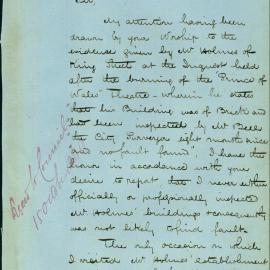 Sir,
My attention having been
drawn by your Worship to the
evidence given by Mr Holmes of
King Street at the Inquest held
after the burning of the Prince of
Wales Theatre - wherein he states
that his Building was of Brick and
had been inspected by Mr Bell
the City Surveyor eight months since
"and no fault found", I have the
honor in accordance with your
desire to report that I never either
officially or professionally inspected
Mr Holmes' buildings & consequently
was not likely to find fault.
The only occasion on which
I visited Mr Holmes' establishment
15 Octob